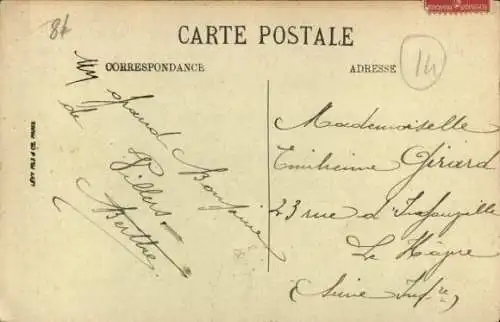 81
CARTE POSTALE
CORRESPONDANCE
ADRESSE
14
Un grand Bonjour
de
Villers.
Berthe.
LÉVY FILS & CIE, PARIS
Mademoiselle
Girard
23 rue d'
Le Hâvre
(Seine Infre)